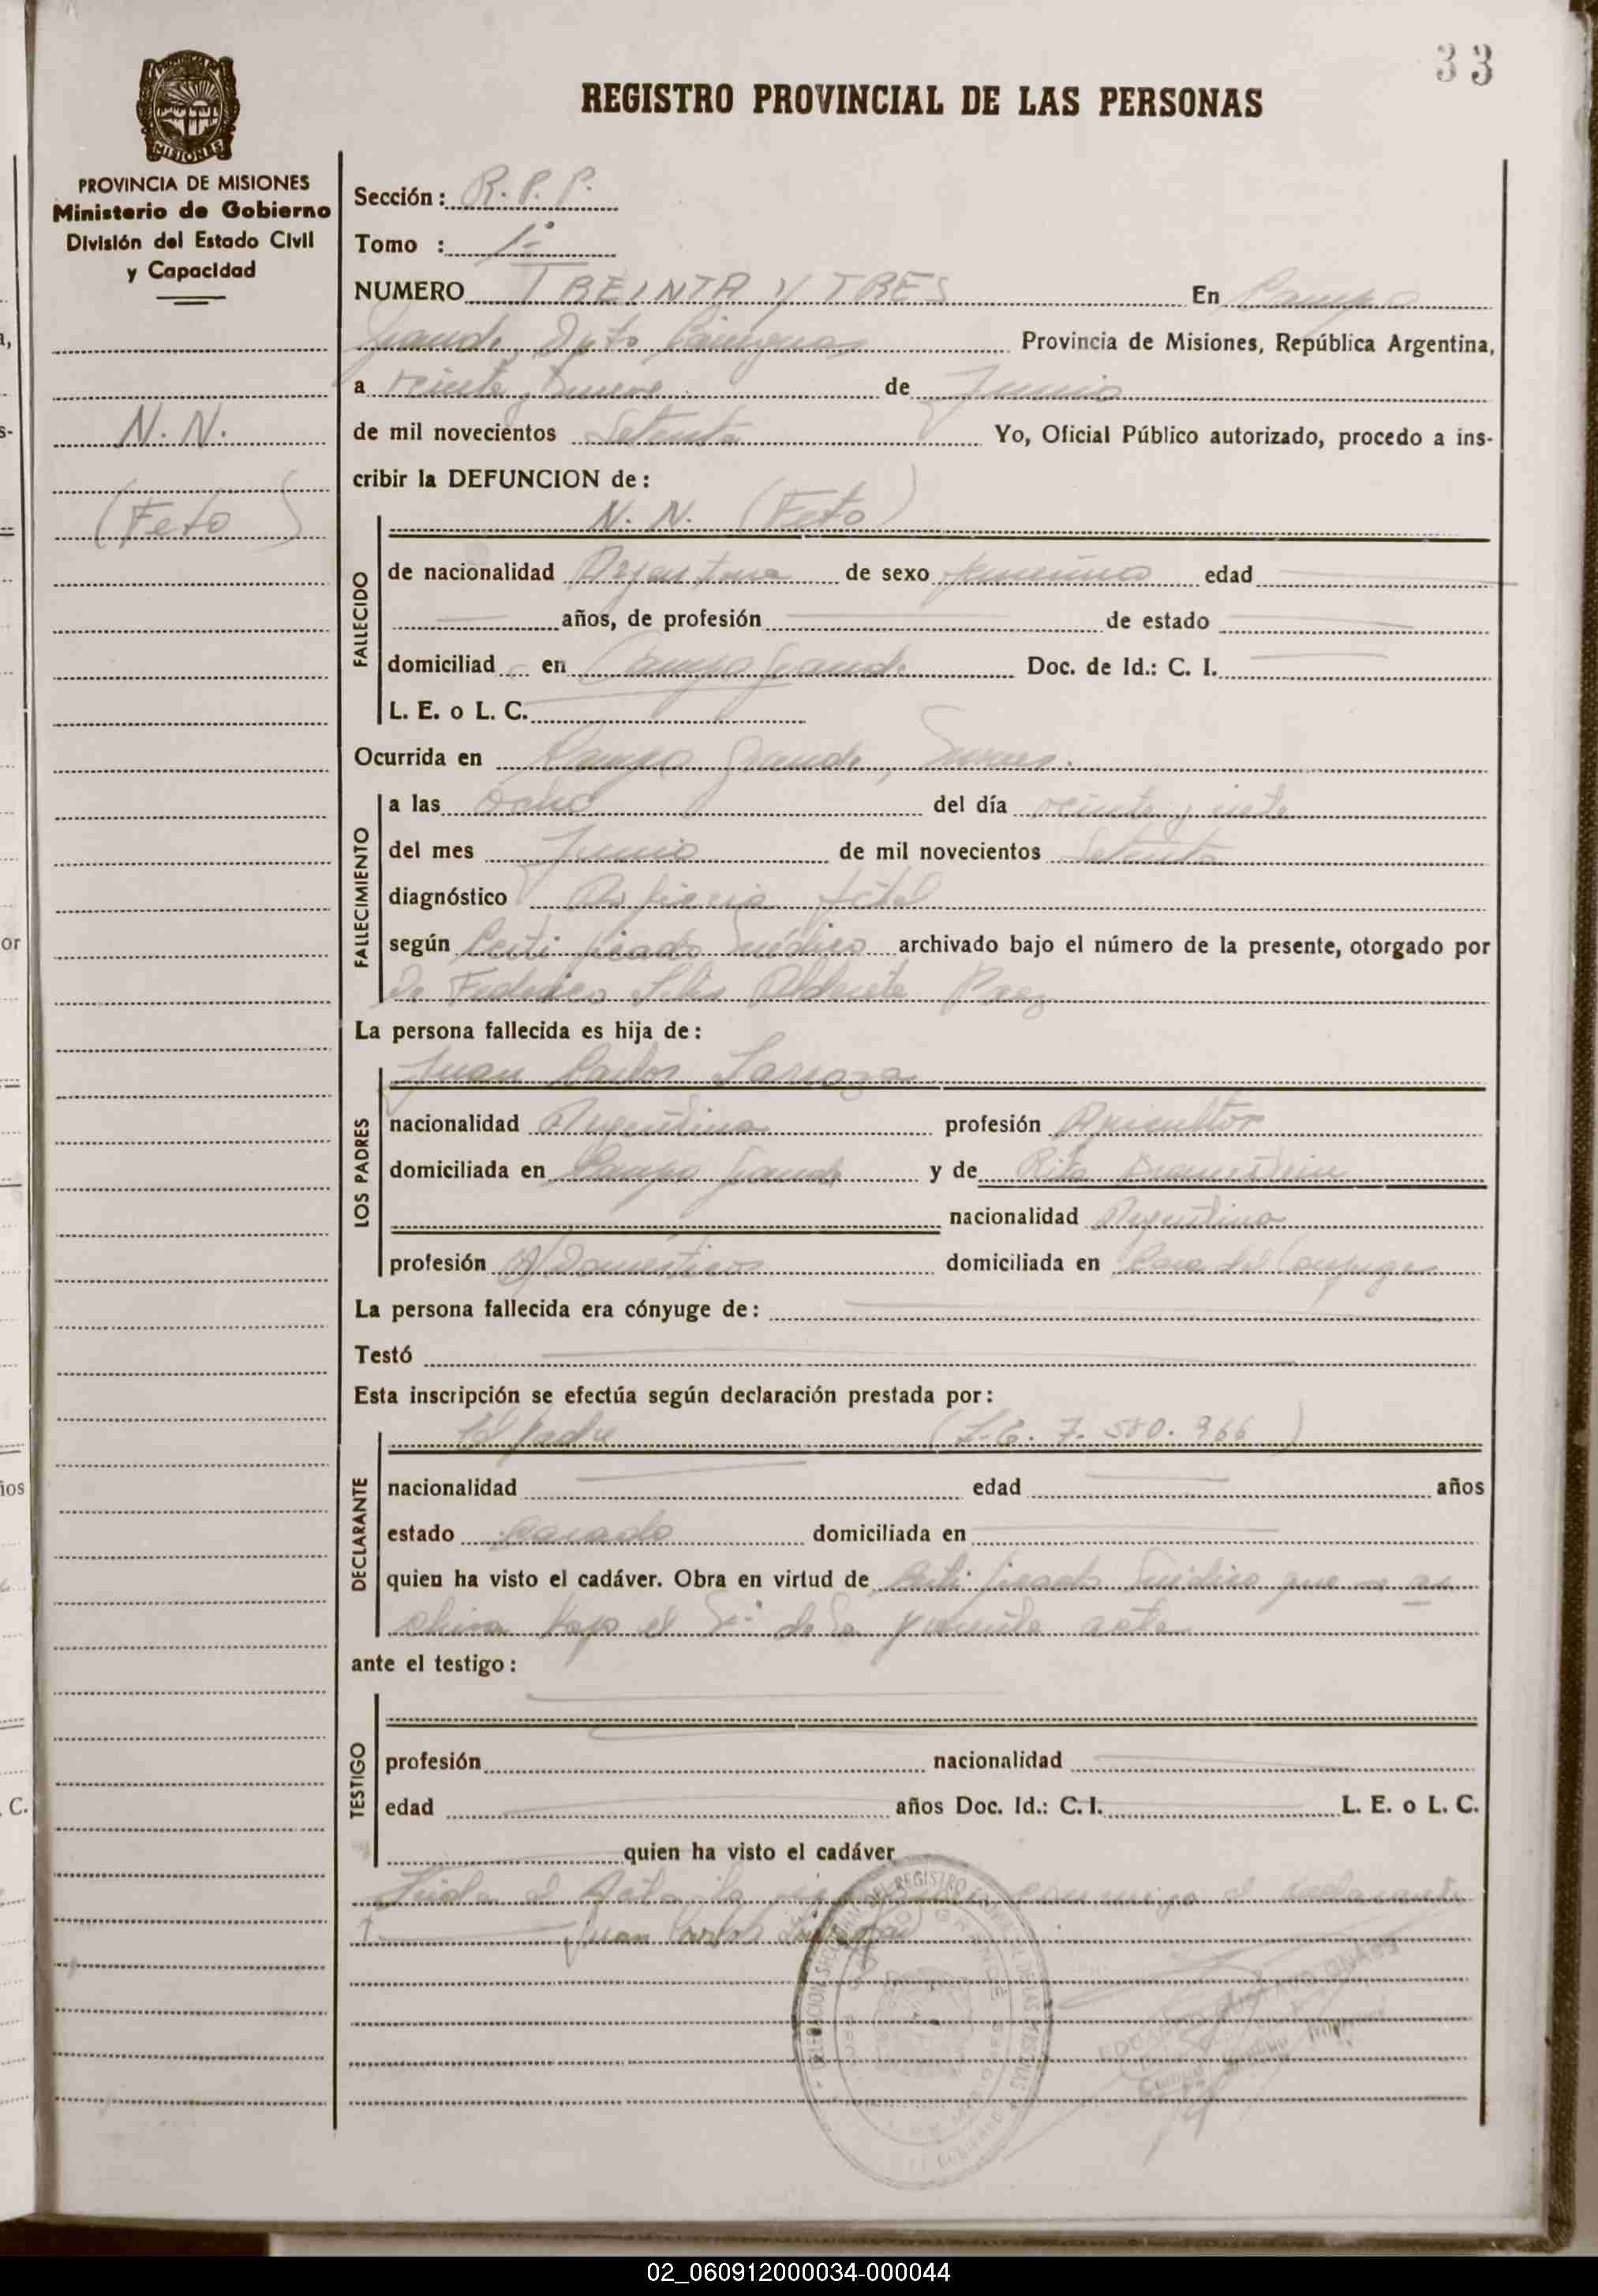 33
REGISTRO PROVINCIAL DE LAS PERSONAS
MISIONES
PROVINCIA DE MISIONES
Ministerio de Gobierno
División del Estado Civil
y Capacidad
N. N.
(Feto)
Sección: R. P. P.
Tomo : 1º
NUMERO TREINTA Y TRES En Campo
Grande, Dpto Cainguas Provincia de Misiones, República Argentina,
a veinte y nueve de Junio
de mil novecientos Setenta Yo, Oficial Público autorizado, procedo a ins-
cribir la DEFUNCION de:
N. N. (Feto)
FALLECIDO
de nacionalidad Argentina de sexo femenino edad
años, de profesión de estado
domiciliad en Campo Grande Doc. de Id.: C. I.
L. E. o L. C.
Ocurrida en Campo Grande, Mnes.
FALLECIMIENTO
a las Ocho del día veinte y siete
del mes Junio de mil novecientos Setenta
diagnóstico Asficcia fetal
según Certificado Médico archivado bajo el número de la presente, otorgado por
Dr Federico Alderete Paez
La persona fallecida es hija de:
LOS PADRES
Juan Carlos
nacionalidad Argentina profesión Agricultor
domiciliada en Campo Grande y de Rita
nacionalidad Argentina
profesión Domésticos domiciliada en Casa del Conyuge
La persona fallecida era cónyuge de:
Testó
Esta inscripción se efectúa según declaración prestada por:
DECLARANTE
El padre (L.E. 7. 580. 966)
nacionalidad edad años
estado Casado domiciliada en
quien ha visto el cadáver. Obra en virtud de Certificado Médico que se ar
chiva bajo el Nº de la presente acta
ante el testigo:
TESTIGO
profesión nacionalidad
edad años Doc. Id.: C. I. L. E. o L. C.
quien ha visto el cadáver
Leida el Acta la conmigo el declarante
Juan Carlos
02_060912000034-000044